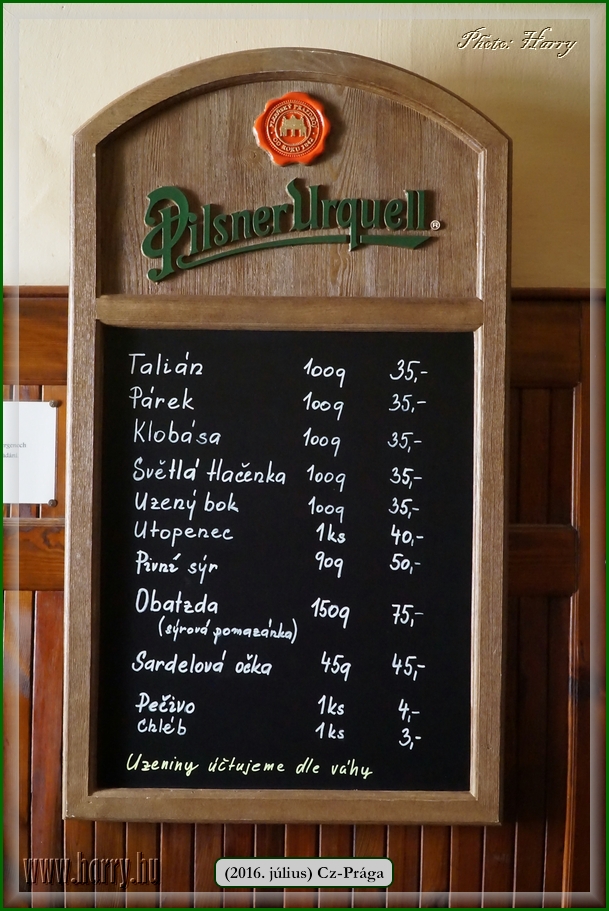 Photo: Harry
PLZEŇSKÝ PRAZDROJ
OD ROKU 1842
Pilsner Urquell ®
Talián 100g 35,-
Párek 100g 35,-
Klobása 100g 35,-
Světlá tlačenka 100g 35,-
Uzený bok 100g 35,-
Utopenec 1ks 40,-
Pivní sýr 90g 50,-
Obatzda 150g 75,-
(sýrová pomazánka)
Sardelová očka 45g 45,-
Pečivo 1ks 4,-
Chléb 1ks 3,-
Uzeniny účtujeme dle váhy
www.harry.hu
(2016. július) Cz-Prága